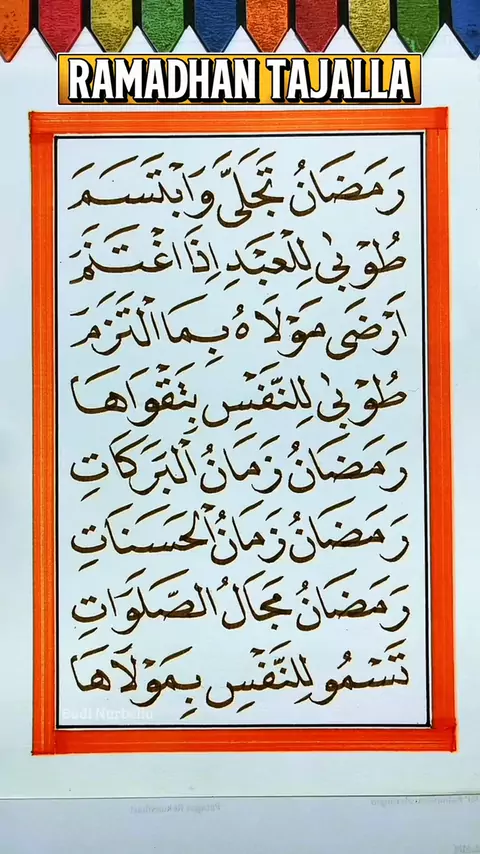 RAMADHAN TAJALLA
رَمَضَانُ تَجَلَّى وَابْتَسَمَ
طُوْبٰى لِلْعَبْدِ اِذَا اغْتَنَمَ
اَرْضَى مَوْلَاهُ بِمَا الْتَزَمَ
طُوْبٰى لِلنَّفْسِ بِتَقْوَاهَا
رَمَضَانُ زَمَانُ الْبَرَكَاتِ
رَمَضَانُ زَمَانُ الْحَسَنَاتِ
رَمَضَانُ مَجَالُ الصَّلَوَاتِ
تَسْمُو لِلنَّفْسِ بِمَوْلَاهَا